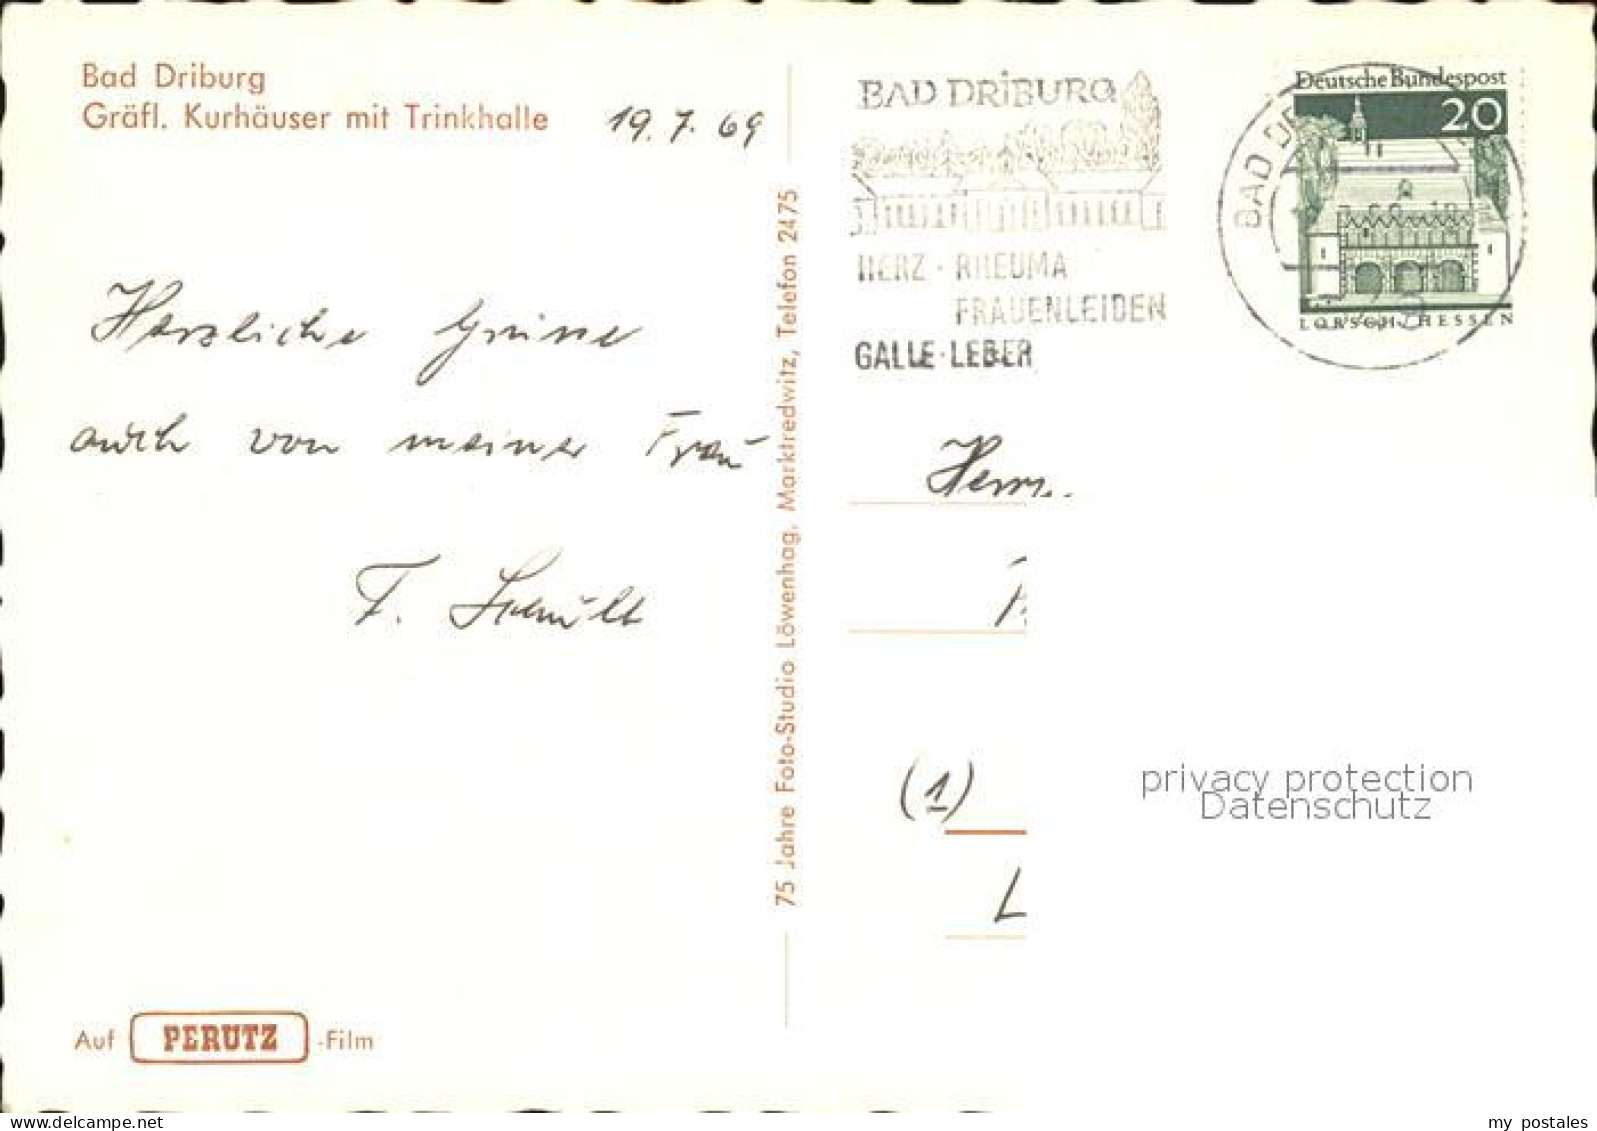 Bad Driburg
Gräfl. Kurhäuser mit Trinkhalle
19. 7. 69
Herzliche Grüsse
auch von meiner Frau
F. Schultt
75 Jahre Foto-Studio Löwenhag, Marktredwitz, Telefon 2475
Auf PERUTZ -Film
BAD DRIBURG
HERZ · RHEUMA
FRAUENLEIDEN
GALLE · LEBER
Deutsche Bundespost
20
LORSCH / HESSEN
BAD DR
Herrn
(1)
L
privacy protection
Datenschutz
delcampe.net
my_postales